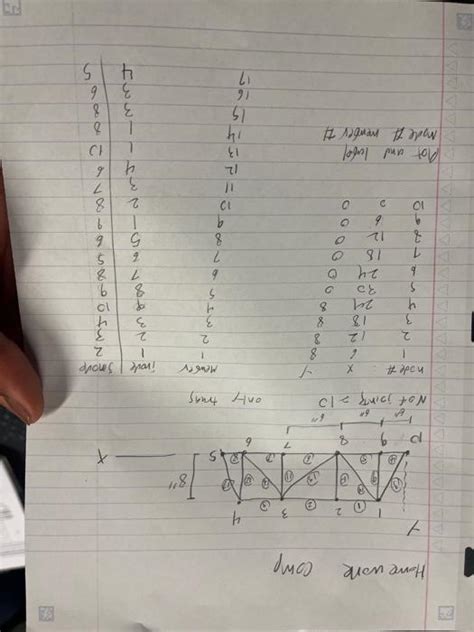 Homework comp
Y
1 2 3 4
8"
10 9 8 7 6 5 X
6" 6" 6"
only truss
node # X Y member inode Jnode
1 6 8 1 1 2
2 12 8 2 2 3
3 18 8 3 3 4
4 24 8 4 9 10
5 30 0 5 8 9
6 24 0 6 7 8
7 18 0 7 6
8 12 0 8 5 6
9 6 0 9 1 9
10 0 0 10 2 8
11 3 7
12 4 6
Plot and label 13 1 10
Node # member # 14 1 8
15 3 8
16 3 6
17 4 5